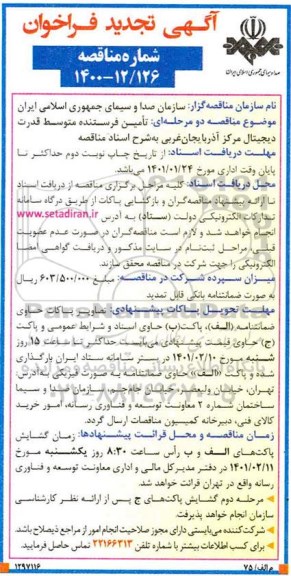 آگهی تجدید فراخوان
شماره مناقصه
۱۴۰۰-۱۲/۱۲۶
صدا و سیمای جمهوری اسلامی ایران
نام سازمان مناقصه‌گزار: سازمان صدا و سیمای جمهوری اسلامی ایران
موضوع مناقصه دو مرحله‌ای: تأمین فرستنده متوسط قدرت
دیجیتال مرکز آذربایجان‌غربی به‌شرح اسناد مناقصه
مهلت دریافت اسناد: از تاریخ چاپ نوبت دوم حداکثر تا
پایان وقت اداری مورخ ۱۴۰۱/۰۱/۲۴ می‌باشد.
محل دریافت اسناد: کلیه مراحل برگزاری مناقصه از دریافت اسناد
تا ارائه پیشنهاد مناقصه‌گران و بازگشایی پاکات از طریق درگاه سامانه
تدارکات الکترونیکی دولت (ستاد) به آدرس www.setadiran.ir
انجام خواهد شد و لازم است مناقصه‌گران در صورت عدم عضویت
قبلی، مراحل ثبت‌نام در سایت مذکور و دریافت گواهی امضا
الکترونیکی را جهت شرکت در مناقصه محقق سازند.
میزان سپرده شرکت در مناقصه: مبلغ ۶۰۳/۵۰۰/۰۰۰ ریال
به صورت ضمانتنامه بانکی قابل تمدید
مهلت و محل تحویل پاکات پیشنهادی: تصاویر پاکات حاوی
ضمانتنامه (الف)، پاکت(ب) حاوی اسناد و شرایط عمومی و پاکت
(ج) حاوی قیمت پیشنهادی می‌بایست حداکثر تا ساعت ۱۵ روز
شنبه مورخ ۱۴۰۱/۰۲/۱۰ در بستر سامانه ستاد ایران بارگذاری
شود و پاکت «الف» حاوی ضمانتنامه به صورت فیزیکی به‌آدرس
تهران، خیابان ولیعصر، خیابان جام‌جم، سازمان صدا و سیما
ساختمان شماره ۲ معاونت توسعه و فناوری رسانه، امور خرید
کالای فنی، دبیرخانه کمیسیون مناقصات ارسال گردد.
زمان مناقصه و محل قرائت پیشنهادها: زمان گشایش
پاکت‌های الف و ب رأس ساعت ۸:۳۰ روز یکشنبه مورخ
۱۴۰۱/۰۲/۱۱ در دفتر مدیرکل مالی و اداری معاونت توسعه و فناوری
رسانه واقع در تهران قرائت خواهد شد.
مرحله دوم گشایش پاکت‌های ج پس از ارائه نظر کارشناسی
سازمان انجام خواهد پذیرفت.
شرکت‌کننده می‌بایستی دارای مجوز صلاحیت انجام امور از مراجع ذیصلاح باشد.
برای کسب اطلاعات بیشتر با شماره تلفن ۲۲۱۶۶۳۱۳ تماس حاصل فرمایید.
م الف/ ۷۵
۱۲۹۷۱۱۶